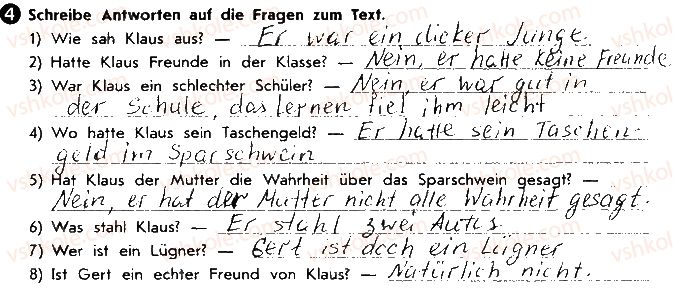 4 Schreibe Antworten auf die Fragen zum Text.
1) Wie sah Klaus aus? — Er war ein dicker Junge.
2) Hatte Klaus Freunde in der Klasse? — Nein, er hatte keine Freunde.
3) War Klaus ein schlechter Schüler? — Nein, er war gut in
der Schule, das lernen fiel ihm leicht
4) Wo hatte Klaus sein Taschengeld? — Er hatte sein Taschen-
geld im Sparschwein
5) Hat Klaus der Mutter die Wahrheit über das Sparschwein gesagt? —
Nein, er hat der Mutter nicht alle Wahrheit gesagt.
6) Was stahl Klaus? — Er stahl zwei Autos.
7) Wer ist ein Lügner? — Gert ist doch ein Lügner
8) Ist Gert ein echter Freund von Klaus? — Natürlich nicht.